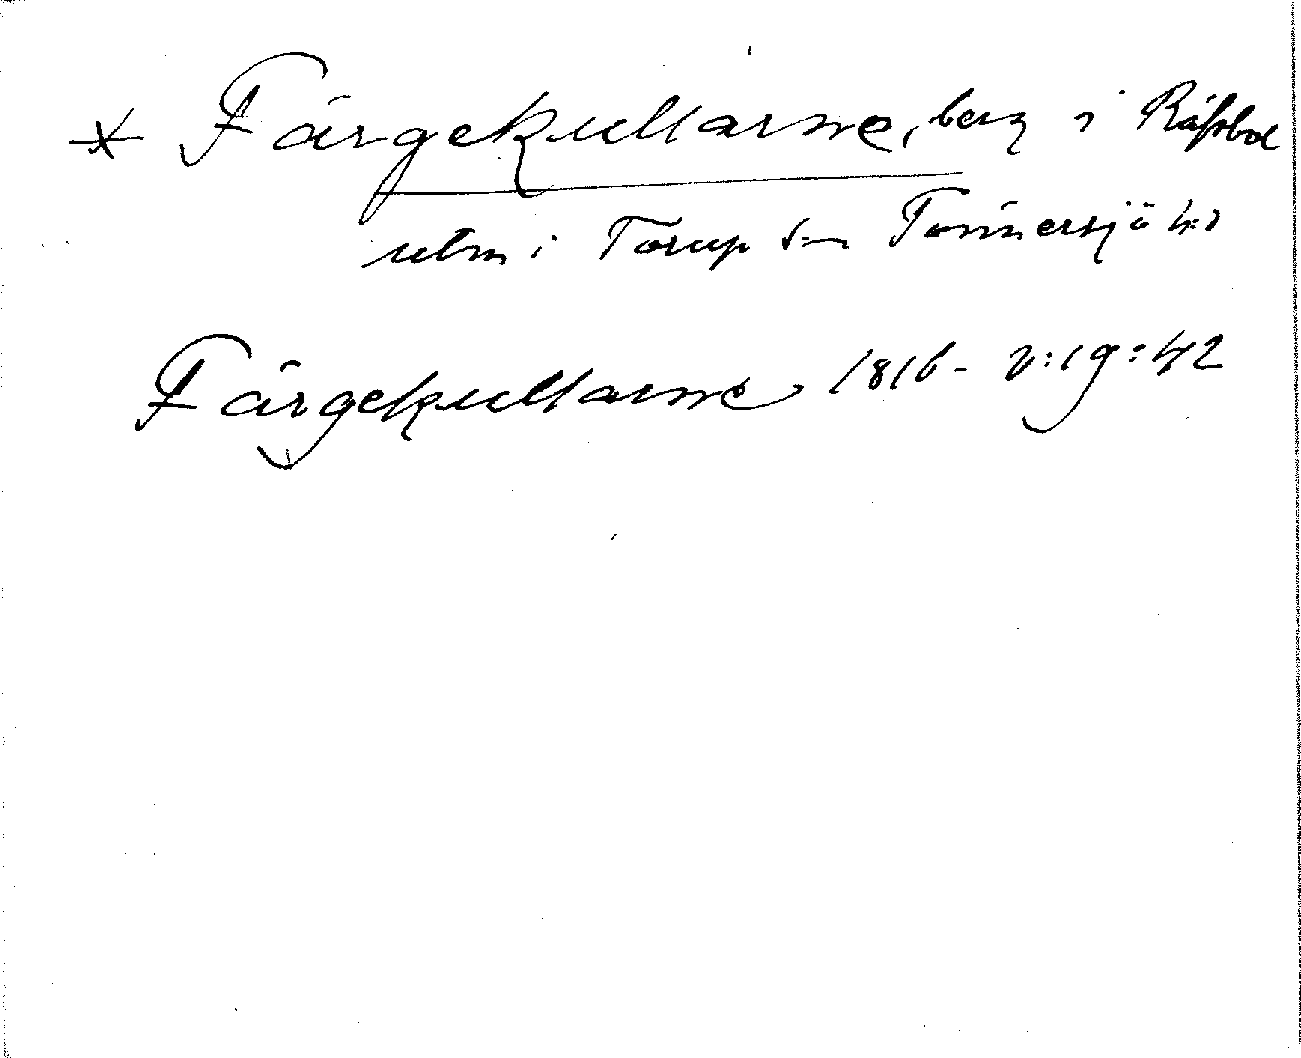 * Färgekullarne, berg i
utm i Torup sn Tönnersjö hd
Färgekullarne 1816 - 2:19:42